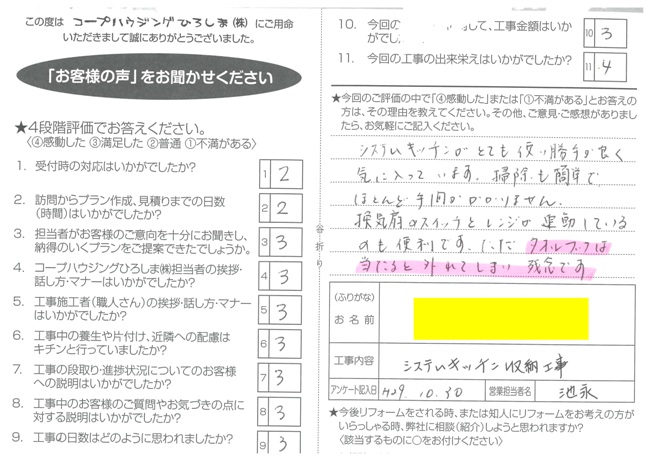 この度は コープハウジングひろしま(株) にご用命
いただきまして誠にありがとうございました。
「お客様の声」をお聞かせください
★4段階評価でお答えください。
〈④感動した ③満足した ②普通 ①不満がある〉
1. 受付時の対応はいかがでしたか? 1 2
2. 訪問からプラン作成、見積りまでの日数
(時間)はいかがでしたか? 2 2
3. 担当者がお客様のご意向を十分にお聞きし、
納得のいくプランをご提案できたでしょうか。 3 3
4. コープハウジングひろしま㈱担当者の挨拶・
話し方・マナーはいかがでしたか? 4 3
5. 工事施工者(職人さん)の挨拶・話し方・マナー
はいかがでしたか? 5 3
6. 工事中の養生や片付け、近隣への配慮は
キチンと行っていましたか? 6 3
7. 工事の段取り・進捗状況についてのお客様
への説明はいかがでしたか? 7 3
8. 工事中のお客様のご質問やお気づきの点に
対する説明はいかがでしたか? 8 3
9. 工事の日数はどのように思われましたか? 9 3
谷折り
10. 今回の して、工事金額はいか
がでし 10 3
11. 今回の工事の出来栄えはいかがでしたか? 11 4
★今回のご評価の中で「④感動した」または「①不満がある」とお答えの
方は、その理由を教えてください。その他、ご意見・ご感想がありまし
たら、お気軽にご記入ください。
システムキッチンがとても使い勝手が良く
気に入っています。掃除も簡単で
ほとんど手間がかかりません。
換気扇のスイッチとレンジが連動している
のも便利です。ただ タオルフックは
当たると外れてしまい 残念です
(ふりがな)
お名前
工事内容 システムキッチン収納工事
アンケート記入日 H29.10.30 営業担当者名 池永
★今後リフォームをされる時、または知人にリフォームをお考えの方が
いらっしゃる時、弊社に相談(紹介)しようと思われますか?
〈該当するものに○をお付けください〉